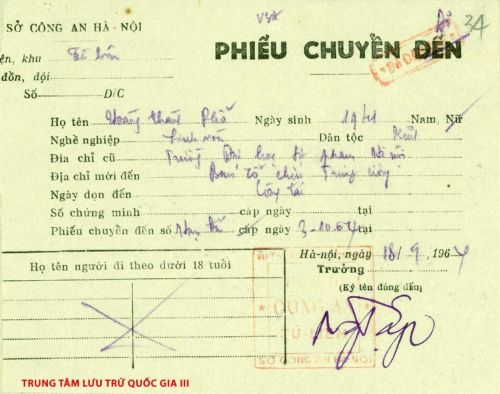 SỞ CÔNG AN HÀ-NỘI
34
PHIẾU CHUYỂN ĐẾN
ện, khu
đồn, đội
Số Đ/C
Họ tên Hoàng Ngày sinh 1941 Nam, Nữ
Nghề nghiệp Dân tộc Kinh
Địa chỉ cũ Trường Đại học Sư phạm Hà nội
Địa chỉ mới đến Ban tổ chức Trung ương
Ngày dọn đến Công tác
Số chứng minh cấp ngày tại
Phiếu chuyển đến số cấp ngày 3-10.64 tại
Họ tên người đi theo dưới 18 tuổi
Hà-nội, ngày 18/9 1964
Trưởng
(Ký tên đóng dấu)
CÔNG AN
SỞ CÔNG AN HÀ NỘI
TRUNG TÂM LƯU TRỮ QUỐC GIA III